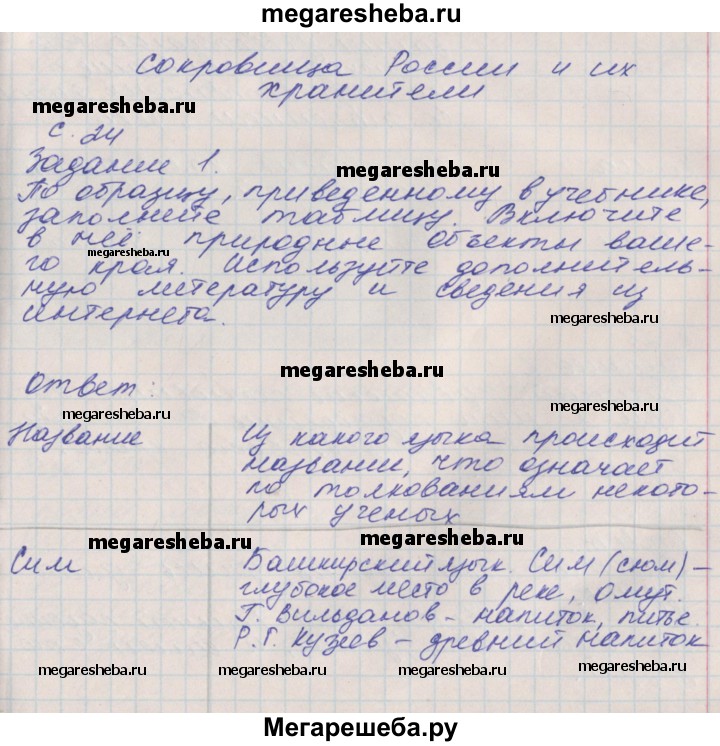 megaresheba.ru
Сокровища России и их
хранители
megaresheba.ru
с. 24
Задание 1.
megaresheba.ru
По образцу, приведенному в учебнике,
заполните таблицу. Включите
в неё природные объекты ваше-
megaresheba.ru
го края. Используйте дополнитель-
ную литературу и сведения из
интернета.
megaresheba.ru
megaresheba.ru
Ответ:
megaresheba.ru
megaresheba.ru
Название
Из какого языка происходит
названии, что означает
по толкованиям некото-
рых ученых
megaresheba.ru
megaresheba.ru
Сим
Башкирский язык. Сим (сюм) –
глубокое место в реке, омут.
Г. Вильданов – напиток, питье.
Р. Г. Кузеев – древний напиток
megaresheba.ru
megaresheba.ru
megaresheba.ru
megaresheba.ru
Мегарешеба.ру